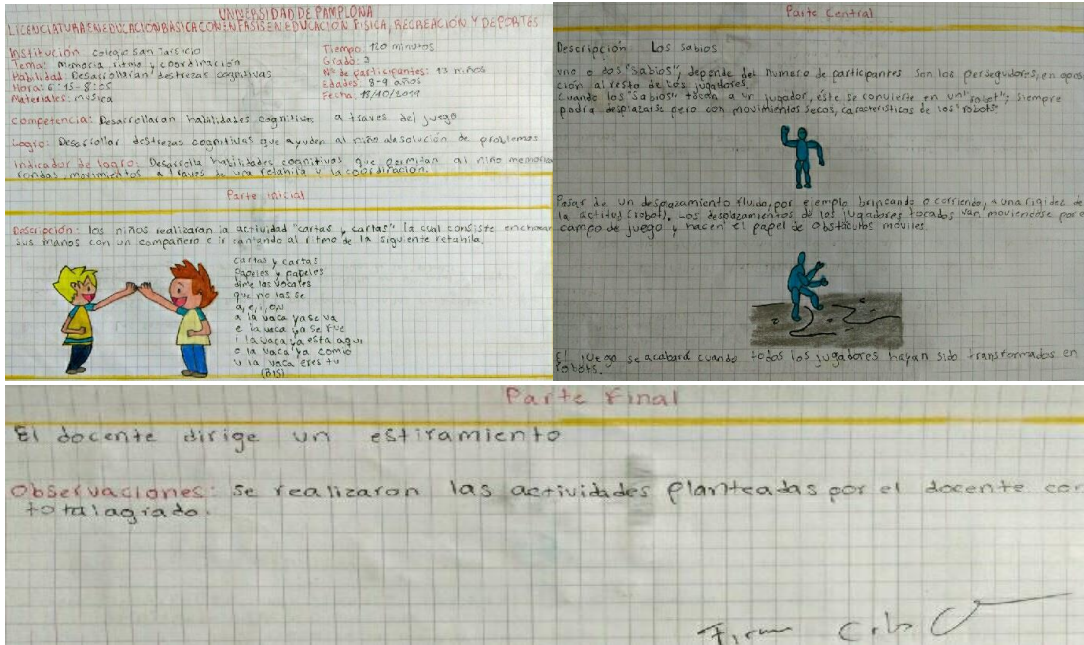 UNIVERSIDAD DE PAMPLONA
LICENCIATURA EN EDUCACION BASICA CON ENFASIS EN EDUCACION FISICA, RECREACIÓN Y DEPORTES
Institución: colegio San Tarsicio
Tema: Memoria, ritmo y coordinación
Habilidad: Desarrollaran destrezas cognitivas
Hora: 6:15-8:05
Materiales: música
Tiempo: 120 minutos
Grado: 3
Nº de participantes: 13 niños
Edades: 8-9 años
Fecha: 15/10/2019
Competencia: Desarrollaran habilidades cognitivas a traves del juego
Logro: Desarrollar destrezas cognitivas que ayuden al niño a la solución de problemas
Indicador de logro: Desarrolla habilidades cognitivas que permitan al niño memoriza
rondas, movimientos a traves de una retahila y la coordinación.
Parte inicial
Descripción: los niños realizaran la actividad "cartas y cartas" la cual consiste en chocar
sus manos con un compañero e ir cantando al ritmo de la siguiente retahila.
cartas y cartas
papeles y papeles
dime las vocales
que no las se
a, e, i, o, u
a la vaca ya se va
e la vaca ya se fue
i la vaca ya esta aqui
o la vaca ya comio
u la vaca eres tu
(BIS)
Parte Central
Descripción Los sabios
uno o dos "sabios", depende del numero de participantes son los perseguidores, en oposi
ción al resto de los jugadores.
Cuando los "sabios" tocan a un jugador, éste se convierte en un "robot"; siempre
podra desplazarse pero con movimientos secos, características de los "robots".
Pasar de un desplazamiento fluido, por ejemplo brincando o corriendo, a una rigidez de
la actitud (robot). Los desplazamientos de los jugadores tocados van moviendose por e
campo de juego y hacen el papel de obstáculos móviles.
El juego se acabará cuando todos los jugadores hayan sido transformados en
robots.
Parte Final
El docente dirige un estiramiento
Observaciones: se realizaron las actividades planteadas por el docente con
total agrado.
Firma